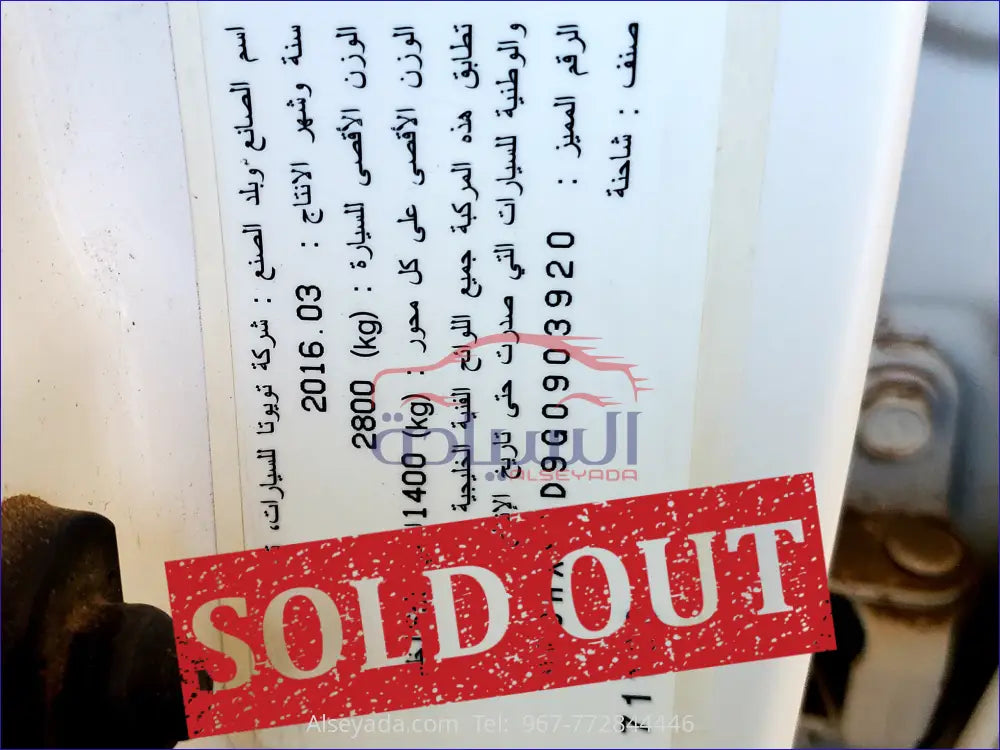 اسم الصانع وبلد الصنع : شركة تويوتا للسيارات،
سنة وشهر الانتاج : 2016.03
الوزن الأقصى للسيارة : 2800 (kg)
الوزن الأقصى على كل محور : 1400 (kg)
تطابق هذه المركبة جميع اللوائح الفنية الخليجية
والوطنية للسيارات التي صدرت حتى تاريخ
الرقم المميز : D9G0903920
صنف : شاحنة
السيادة
ALSEYADA
SOLD OUT
Alseyada.com Tel: 967-772844446